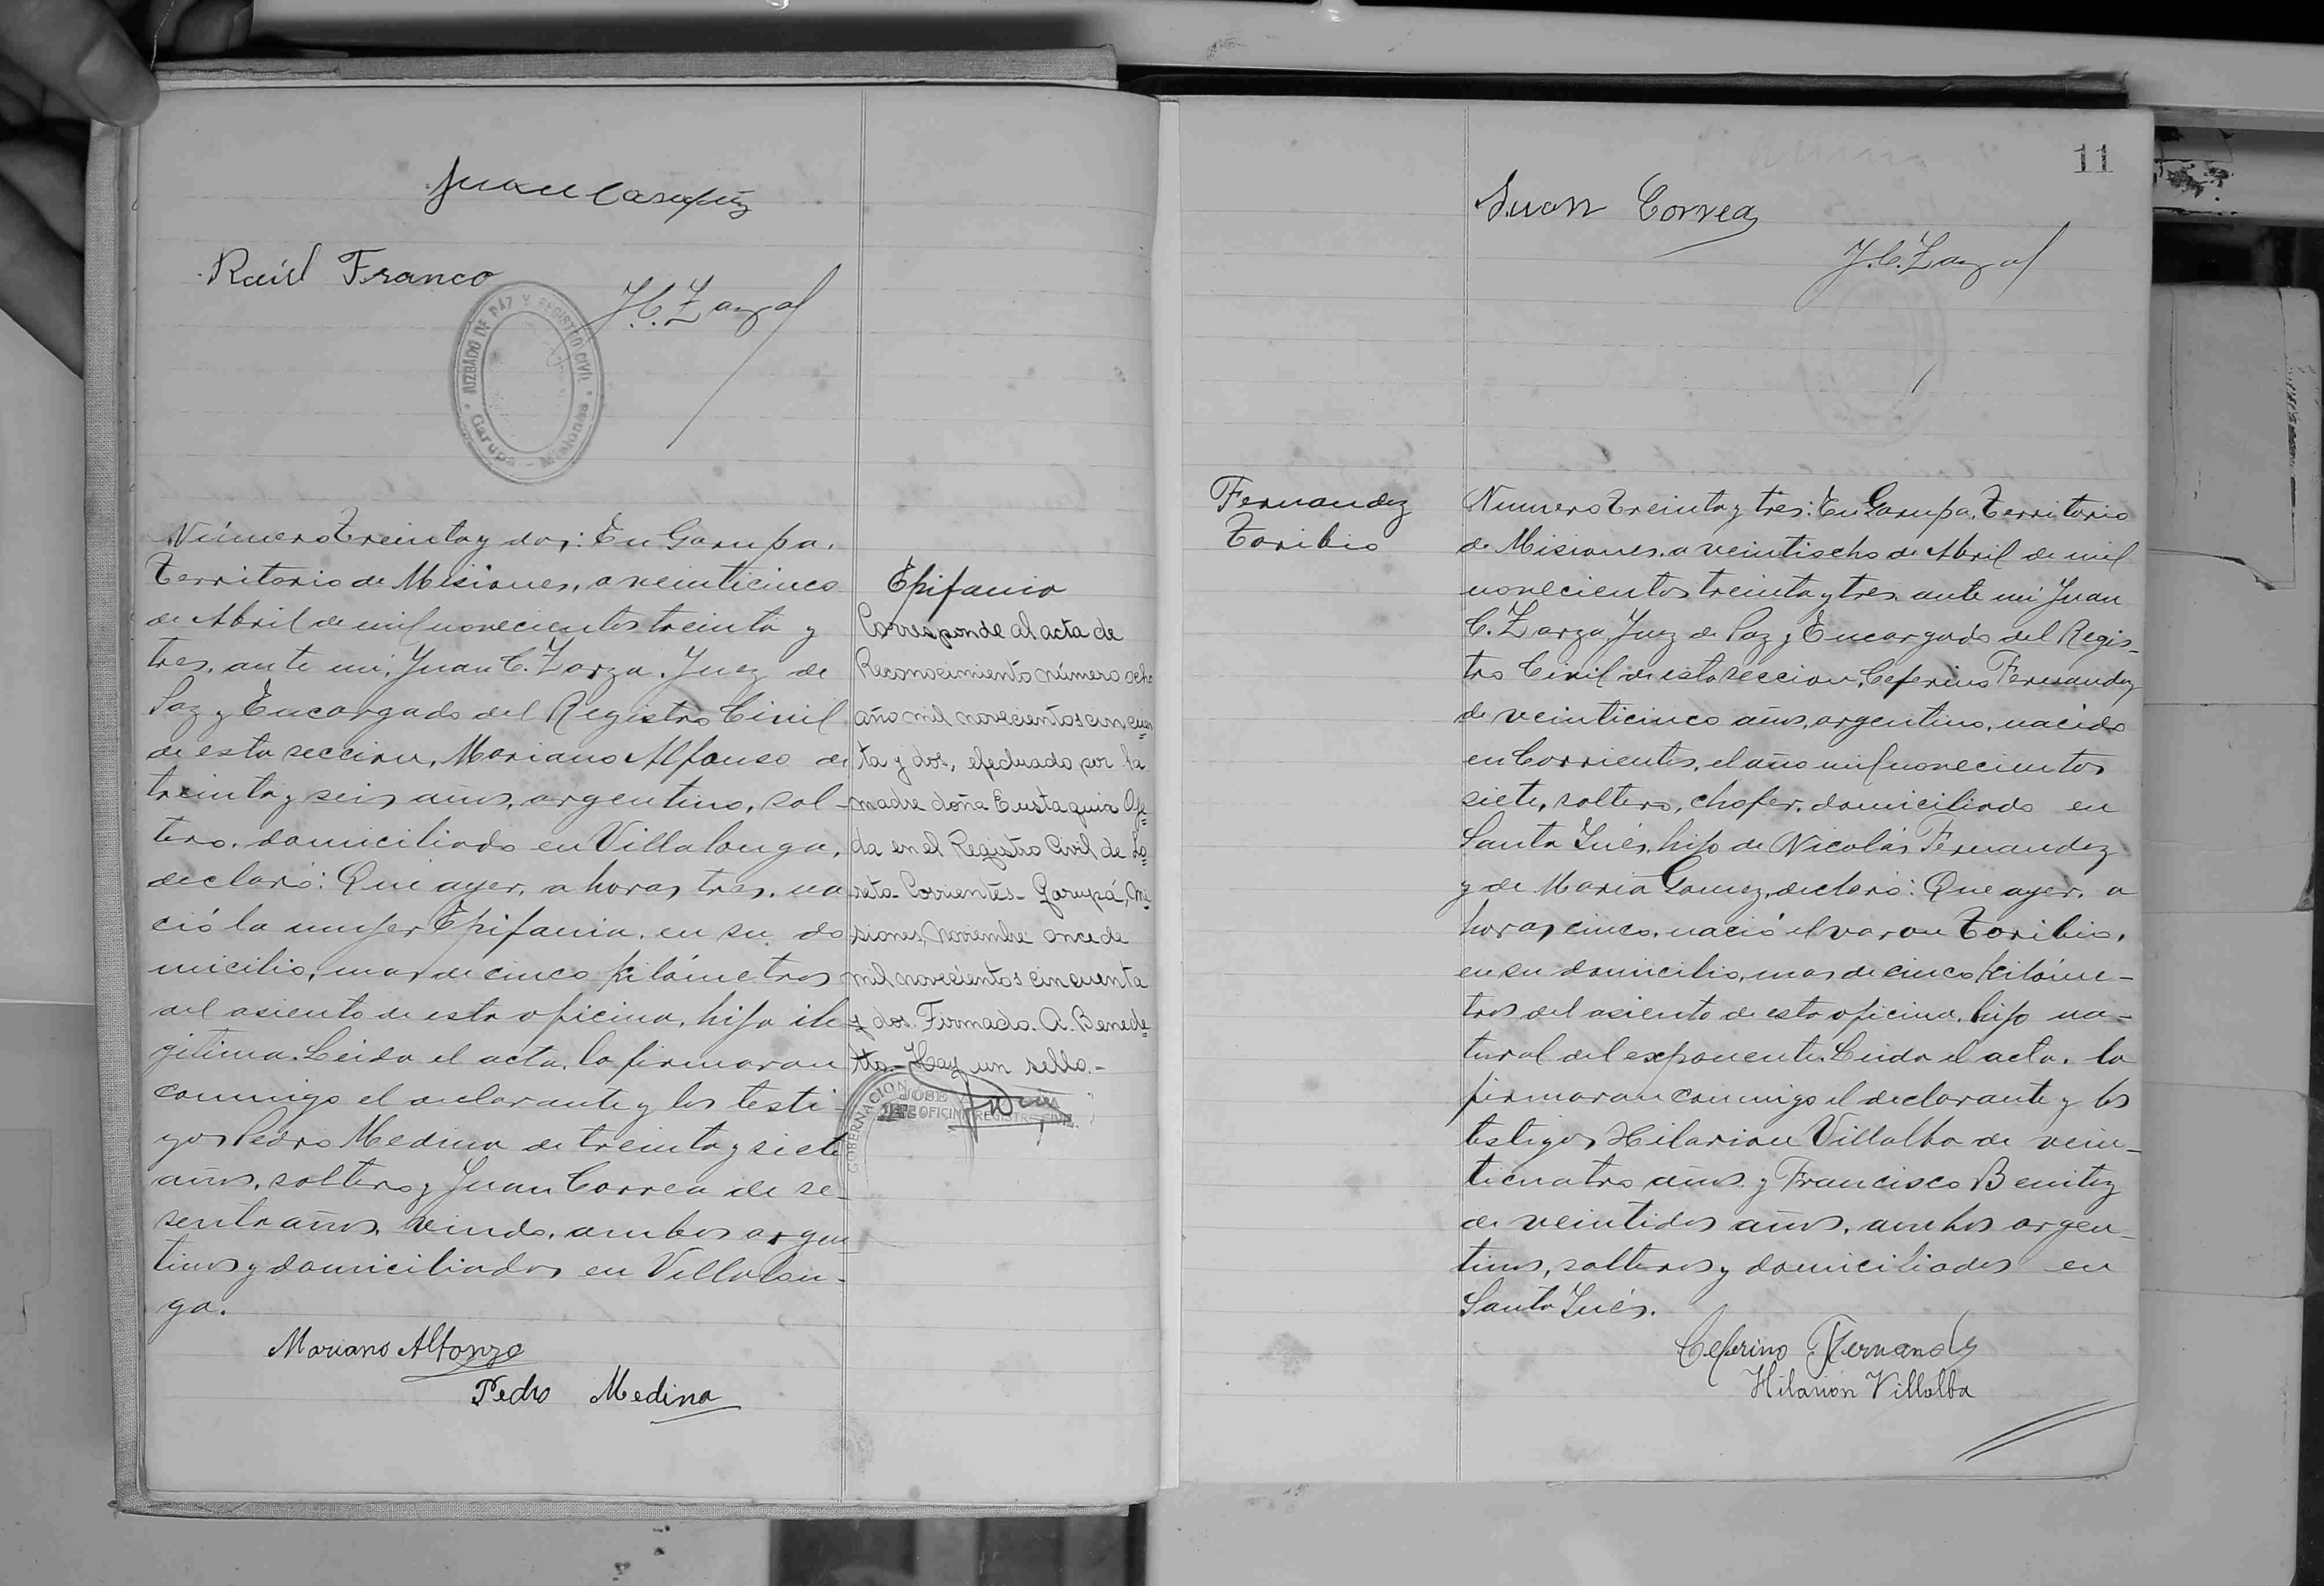 Juan
Raúl Franco
J. C. Zarza
JUZGADO DE PAZ Y REGISTRO CIVIL
Garupa - Misiones
Número treinta y dos: En Garupa,
Territorio de Misiones, a veinticinco
de Abril de mil novecientos treinta y
tres, ante mi, Juan C. Zarza, Juez de
Paz y Encargado del Registro Civil
de esta seccion, Mariano Alfonso de
treinta y seis años, argentino, sol-
tero, domiciliado en Villalonga,
declaró: Que ayer, a horas tres, na
ció la mujer Epifania, en su do
micilio, mas de cinco kilómetros
del asiento de esta oficina, hija ile
gitima. Leida el acta, la firmaron
conmigo el declarante y los testi-
gos Pedro Medina de treinta y siete
años, soltero y Juan Correa de se-
senta años, viudo, ambos argen
tinos y domiciliados en Villalon-
ga.
Mariano Alfonzo
Pedro Medina
Epifania
Corresponde al acta de
Reconocimiento número ocho
año mil novecientos cincuen
ta y dos, efectuado por la
madre doña Eustaquia Oje
da en el Registro Civil de Lo
reto- Corrientes- Garupá, Mi
siones, Noviembre once de
mil novecientos cincuenta
y dos. Firmado. A. Benede
tto.- Hay un sello.-
GOBERNACION
JOSE
JEFE OFICINA REGISTRO CIVIL
11
Juan Correa
J. C. Zarza
Fernandez
Toribio
Numero treinta y tres: En Garupa, Territorio
de Misiones, a veintiocho de Abril de mil
novecientos treinta y tres, ante mi Juan
C. Zarza, Juez de Paz y Encargado del Regis-
tro Civil de esta seccion, Ceferino Fernandez
de veinticinco años, argentino, nacido
en Corrientes, el año mil novecientos
siete, soltero, chofer, domiciliado en
Santa Inés, hijo de Nicolás Fernandez
y de Maria Gomez, declaró: Que ayer, a
horas cinco, nació el varon Toribio,
en su domicilio, mas de cinco kilóme-
tros del asiento de esta oficina, hijo na-
tural del exponente. Leida el acta, la
firmaron conmigo el declarante y los
testigos Hilarion Villalba de vein-
ticuatro años y Francisco Benitez
de veintidos años, ambos argen-
tinos, solteros y domiciliados en
Santa Inés.
Ceferino Fernandez
Hilarión Villalba